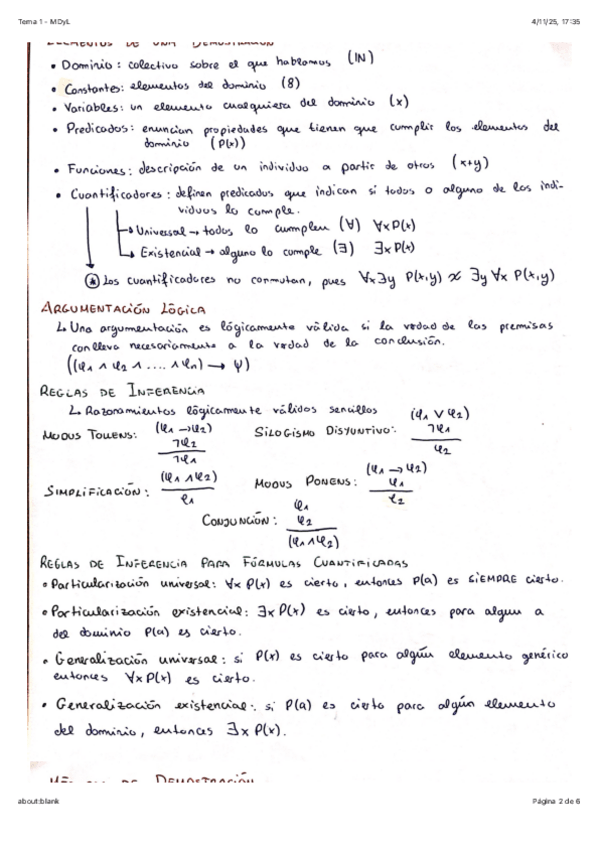 Tema 1 - MDyL 4/11/25, 17:35
ELEMENTOS DE UNA DEMOSTRACIÓN
• Dominio: colectivo sobre el que hablamos (IN)
• Constantes: elementos del dominio (8)
• Variables: un elemento cualquiera del dominio (x)
• Predicados: enuncian propiedades que tienen que cumplir los elementos del
dominio (P(x))
• Funciones: descripción de un individuo a partir de otros (x+y)
• Cuantificadores: definen predicados que indican si todos o alguno de los indi-
viduos lo cumple.
↳ Universal → todos lo cumplen (∀) ∀x P(x)
↳ Existencial → alguno lo cumple (∃) ∃x P(x)
⊛ Los cuantificadores no conmutan, pues ∀x∃y P(x,y) ≉ ∃y ∀x P(x,y)
ARGUMENTACIÓN LÓGICA
↳ Una argumentación es lógicamente válida si la verdad de las premisas
conlleva necesariamente a la verdad de la conclusión.
((φ1 ∧ φ2 ∧ .... ∧ φn) → ψ)
REGLAS DE INFERENCIA
↳ Razonamientos lógicamente válidos sencillos
MODUS TOLLENS: (φ1 → φ2)
¬φ2
¬φ1
SILOGISMO DISYUNTIVO: (φ1 ∨ φ2)
¬φ1
φ2
SIMPLIFICACIÓN: (φ1 ∧ φ2)
φ1
MODUS PONENS: (φ1 → φ2)
φ1
φ2
CONJUNCIÓN: φ1
φ2
(φ1 ∧ φ2)
REGLAS DE INFERENCIA PARA FÓRMULAS CUANTIFICADAS
• Particularización universal: ∀x P(x) es cierto, entonces P(a) es SIEMPRE cierto.
• Particularización existencial: ∃x P(x) es cierto, entonces para algun a
del dominio P(a) es cierto.
• Generalización universal: si P(x) es cierto para algún elemento genérico
entonces ∀x P(x) es cierto.
• Generalización existencial: si P(a) es cierto para algún elemento
del dominio, entonces ∃x P(x).
DE DEMOSTRACIÓN
about:blank Página 2 de 6